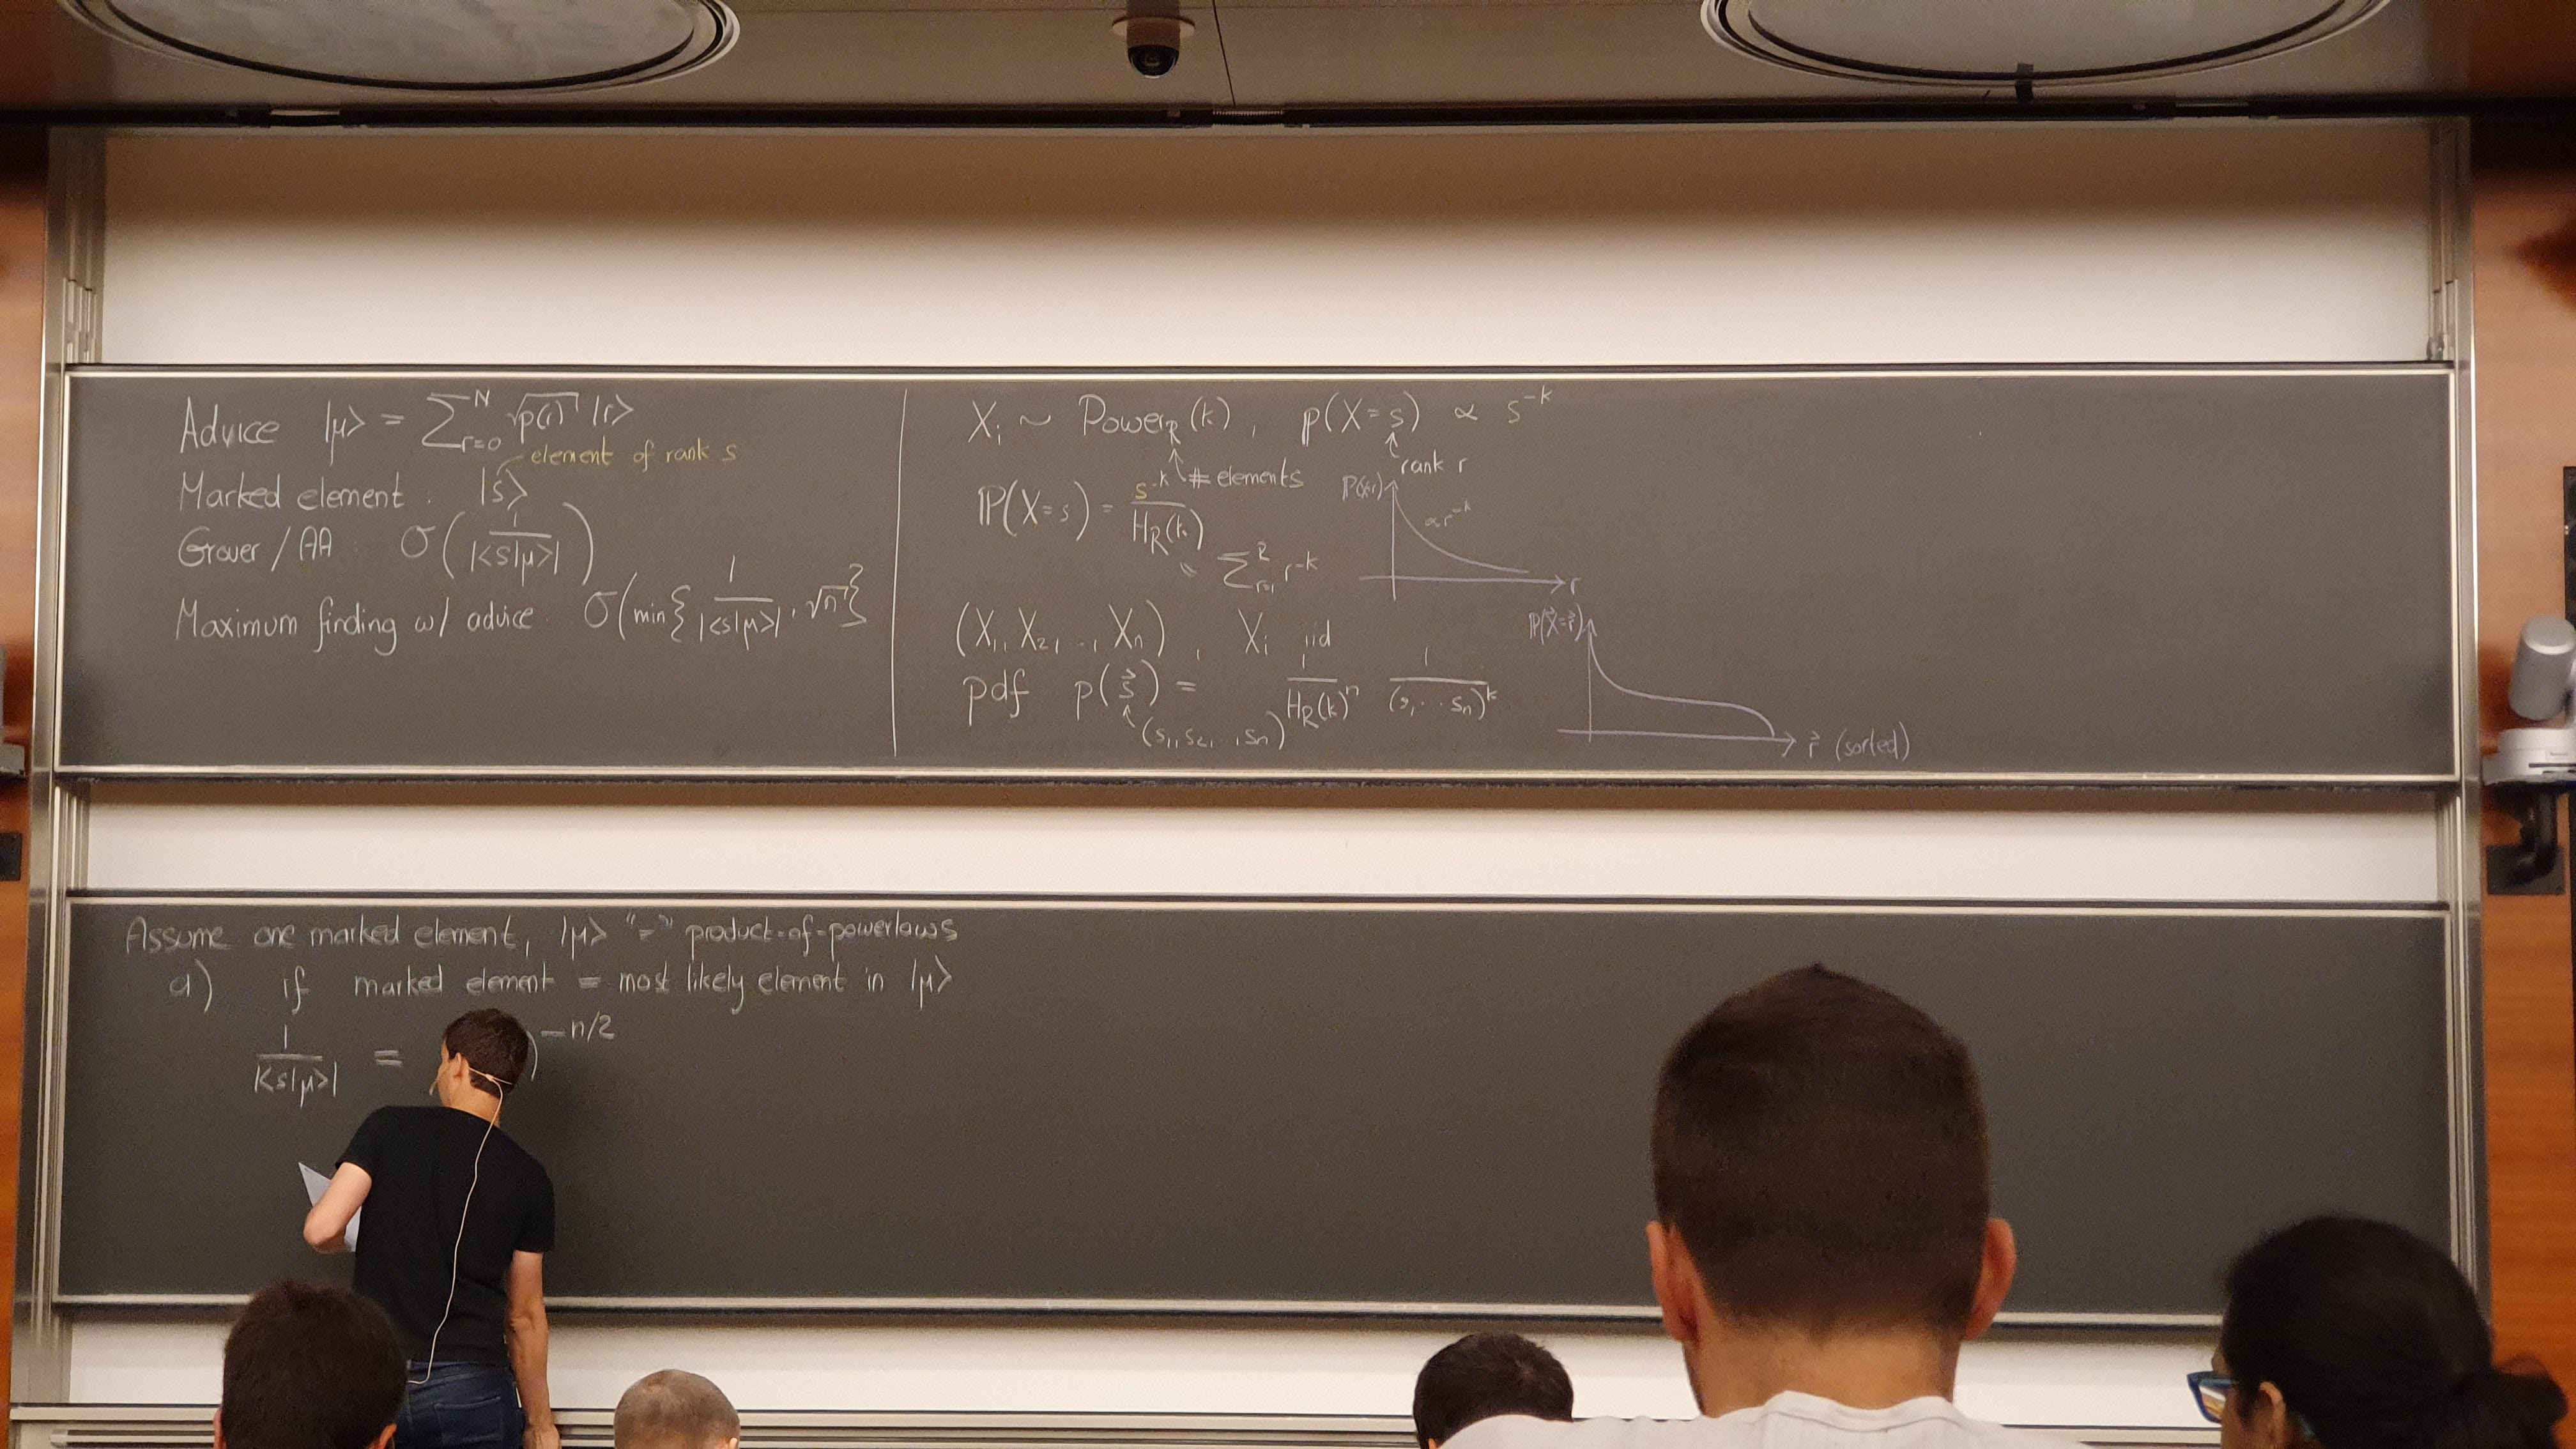 Advice |μ> = ∑_{r=0}^{N} √p(r) |r>
element of rank s
Marked element : |s>
Grover / AA : O( 1 / |<s|μ>| )
Maximum finding w/ advice. O(min{ 1 / |<s|μ>| , √n }
X_i ~ Power_R (k) , p(X=s) ∝ s^{-k}
# elements
rank r
P(X=s) = s^{-k} / H_R(k)
" ∑_{r=1}^{R} r^{-k}
P(X=r)
∝ r^{-k}
r
(X_1, X_2, .., X_n) , X_i iid
pdf p(s⃗) = 1 / H_R(k)^n 1 / (s_1 ... s_n)^k
(s_1, s_2, .., s_n)
P(X⃗=r⃗)
r⃗ (sorted)
Assume one marked element, |μ> "=" product-of-powerlaws
a) if marked element = most likely element in |μ>
1 / |<s|μ>| = )^{-n/2}